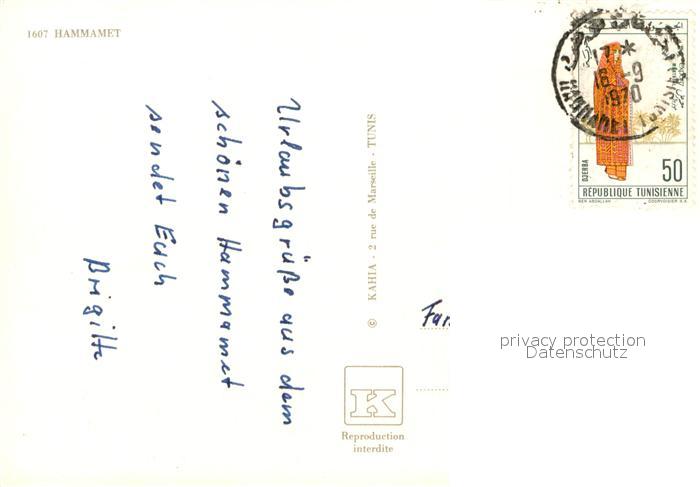 1607 HAMMAMET
Urlaubsgrüße aus dem
schönen Hammamet
sendet Euch
Brigitte
© KAHIA - 2 rue de Marseille - TUNIS
K
Reproduction
interdite
17 *
16 -9
1970
DJERBA
50
RÉPUBLIQUE TUNISIENNE
COURVOISIER S.A.
privacy protection
Datenschutz